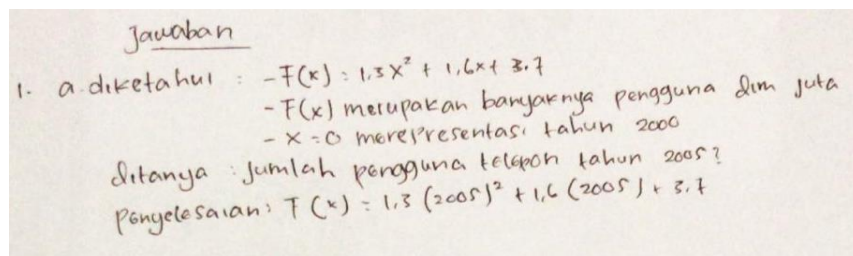 Jawaban
1. a. diketahui : - F(x) = 1,3x² + 1,6x + 3.7
- F(x) merupakan banyaknya pengguna dlm juta
- x = 0 merepresentasi tahun 2000
ditanya : jumlah pengguna telepon tahun 2005?
Penyelesaian: F(x) = 1,3 (2005)² + 1,6 (2005) + 3,7